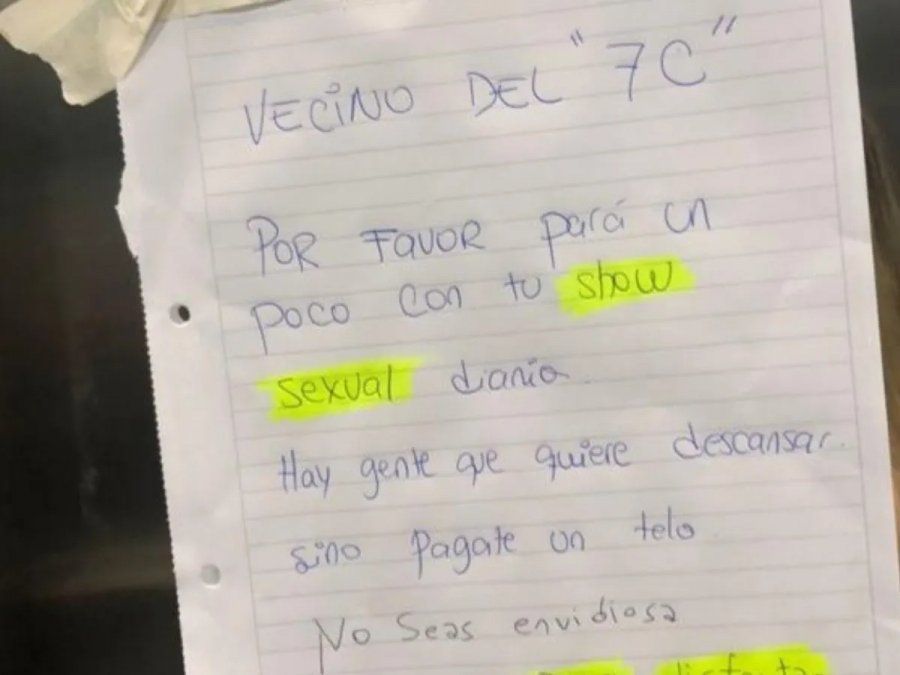 VECINO DEL "7C"
POR FAVOR pará un
poco con tu show
sexual diario.
Hay gente que quiere descansar.
sino pagate un telo.
No Seas envidiosa